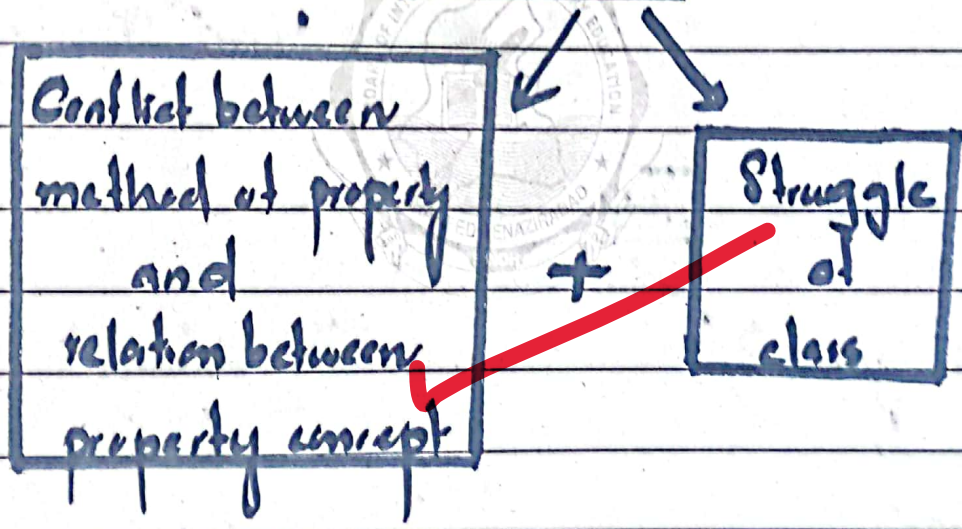 Conflict between
method of property
and
relation between
property concept
+
Struggle
of
class